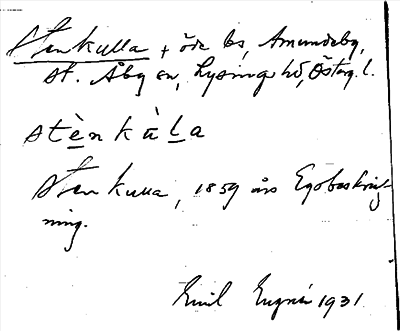 Stenkulla + öde bs, Amundeby,
St. Åby sn, Lysings hd, Östag. l.
stènkàla
Stenkulla, 1859 års Egobeskriv-
ning.
Emil 1931